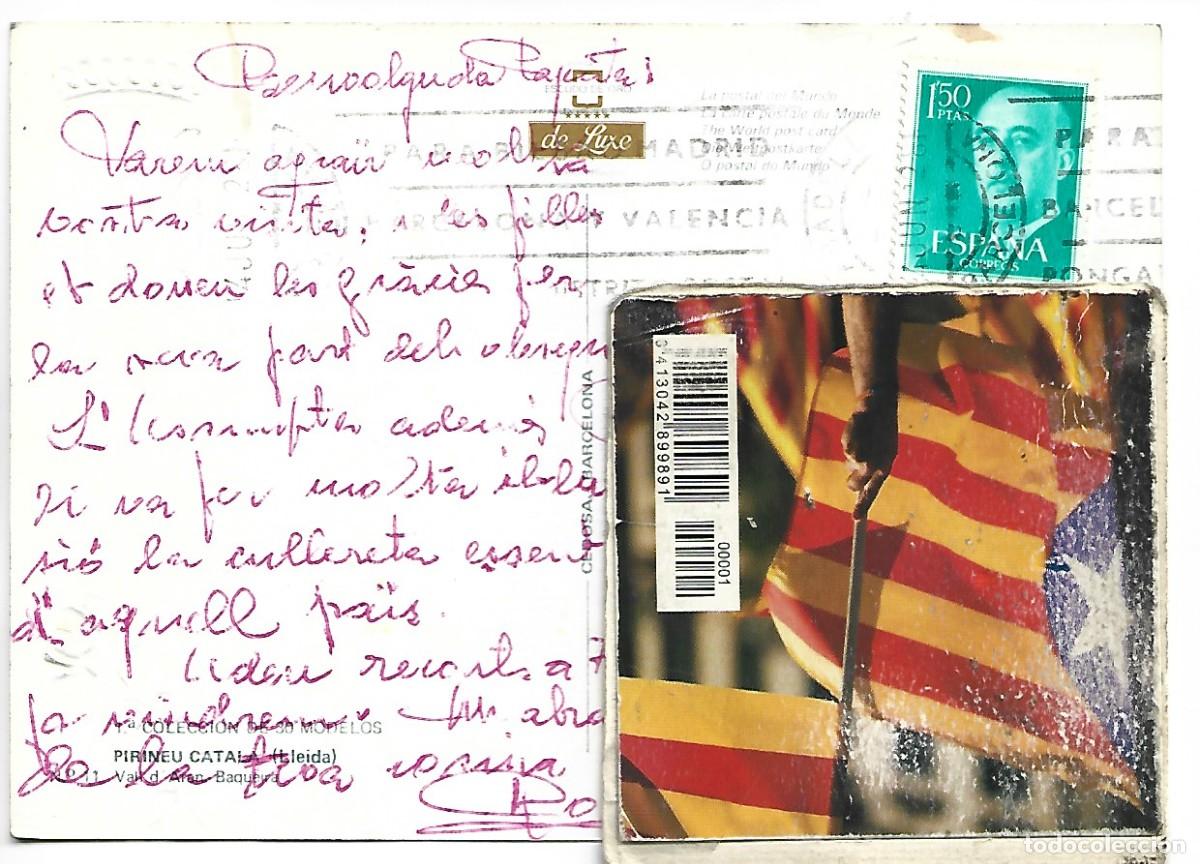 Benvolguda Papita:
Varem agrair molt la
vostra visita, i les filles
et donen les gràcies per
la seva part dels obsequ
L'Assumpta ademés
li va fer molta il·lu
sió la cullereta essent
d'aquell país.
Un abra
de la teva cosina
Ro
ESCUDO DE ORO
de Luxe
La postal del Mundo
La carte postale du Monde
The World post card
Die Weltpostkarte
O postal do Mundo
1'50
PTAS
ESPAÑA
CORREOS
MADRID
VALENCIA
PARA
BARCEL
PONGA
BARCELONA
1.ª COLECCIÓN DE 30 MODELOS
PIRINEU CATALÀ (Lleida)
N.º 11 Val d'Aran. Baqueira
3 413042 899891
00001
todocoleccion
todocoleccion.net